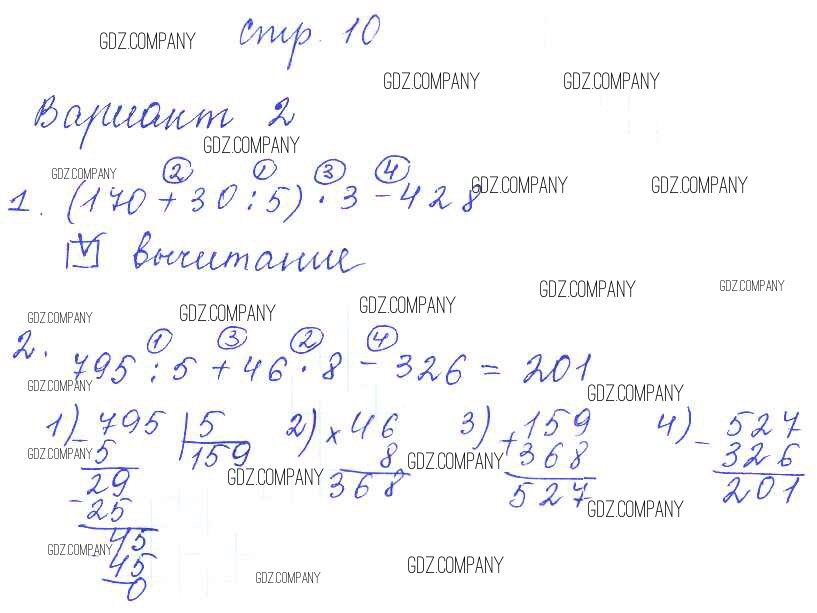 GDZ.COMPANY стр. 10
GDZ.COMPANY GDZ.COMPANY
Вариант 2
GDZ.COMPANY
GDZ.COMPANY ② ① ③ ④
1. (170 + 30 : 5) · 3 - 428 GDZ.COMPANY GDZ.COMPANY
V вычитание
GDZ.COMPANY GDZ.COMPANY
GDZ.COMPANY GDZ.COMPANY GDZ.COMPANY
① ③ ② ④
2. 795 : 5 + 46 · 8 - 326 = 201
GDZ.COMPANY GDZ.COMPANY
1) 795 | 5 2) × 46 3) + 159 4) - 527
- 5 159 8 368 326
GDZ.COMPANY GDZ.COMPANY GDZ.COMPANY
29 368 527 201
- 25 GDZ.COMPANY
45
GDZ.COMPANY - 45 GDZ.COMPANY
0 GDZ.COMPANY